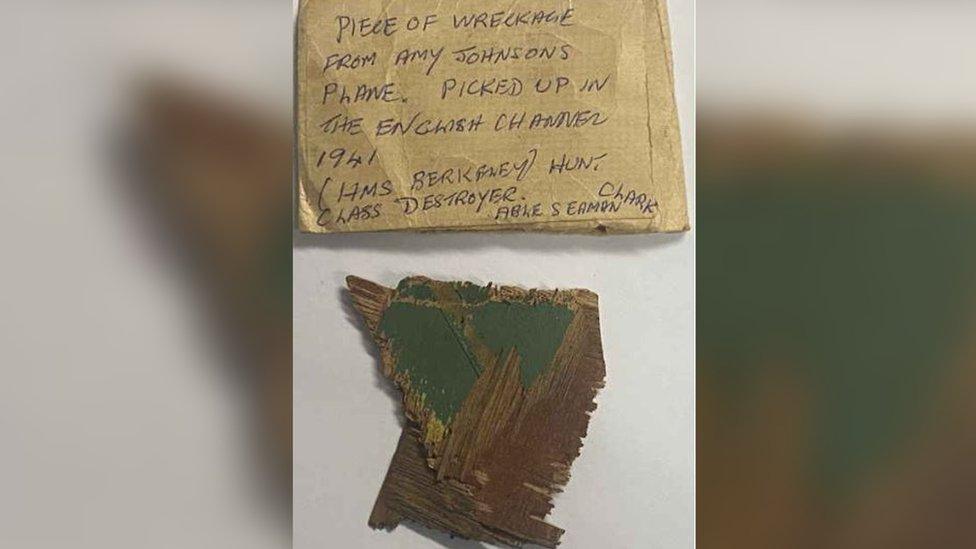 PIECE OF WRECKAGE
FROM AMY JOHNSONS
PLANE. PICKED UP IN
THE ENGLISH CHANNEL
1941
(HMS BERKELEY) HUNT
CLASS DESTROYER.
ABLE SEAMAN CLARK